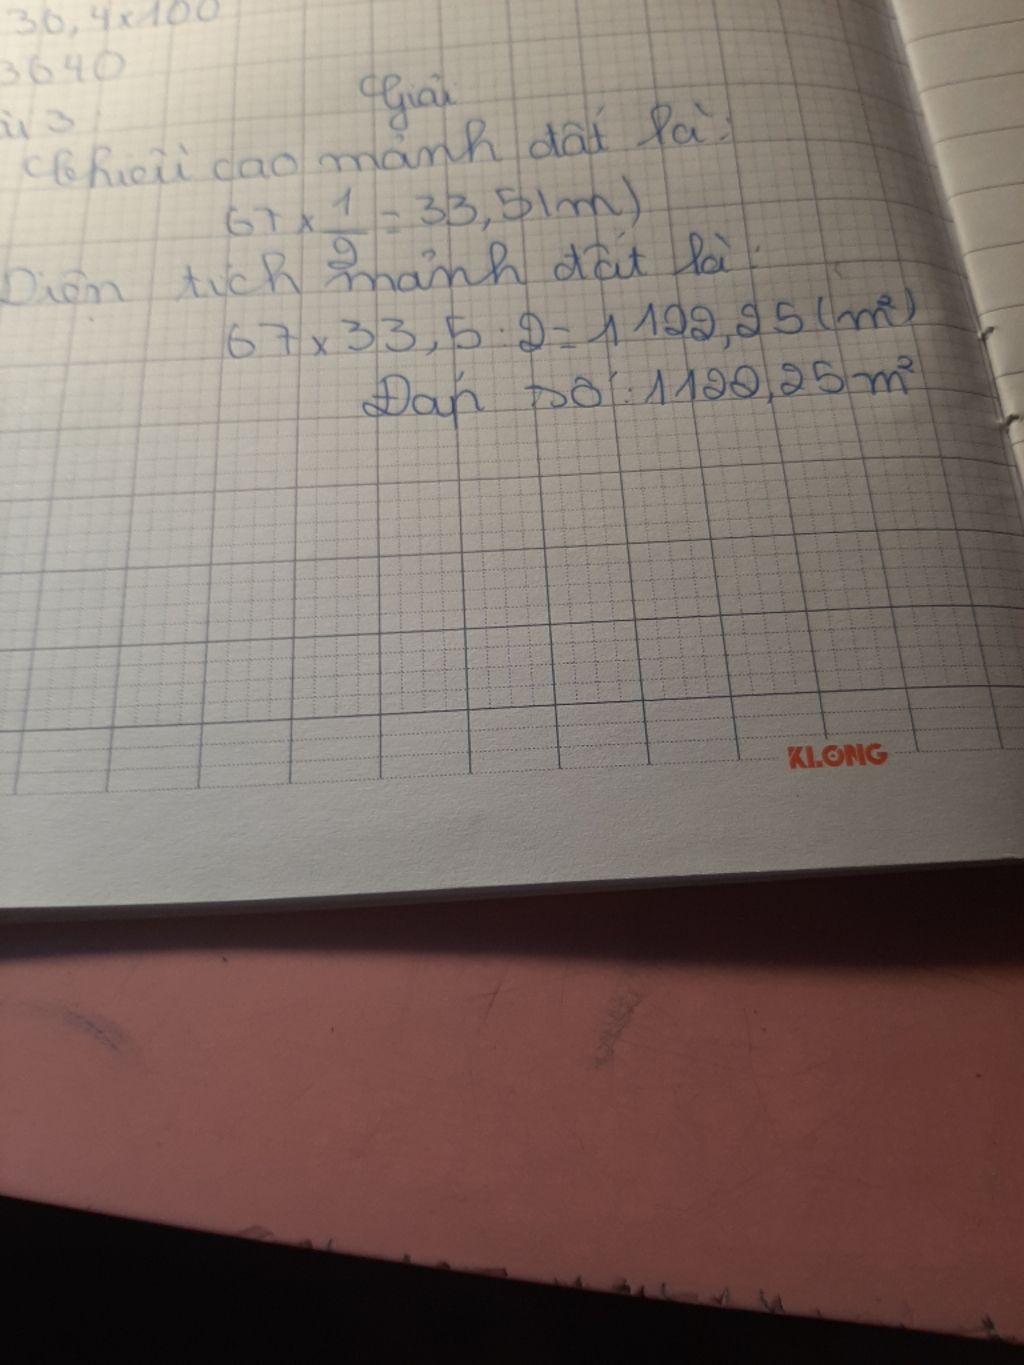 36,4x100
3640
ài 3
Giải
Chiều cao mảnh đất là:
67 x 1/2 = 33,5(m)
Diện tích mảnh đất là:
67 x 33,5 : 2 = 1122,25 (m²)
Đáp số: 1122,25 m²
KLONG